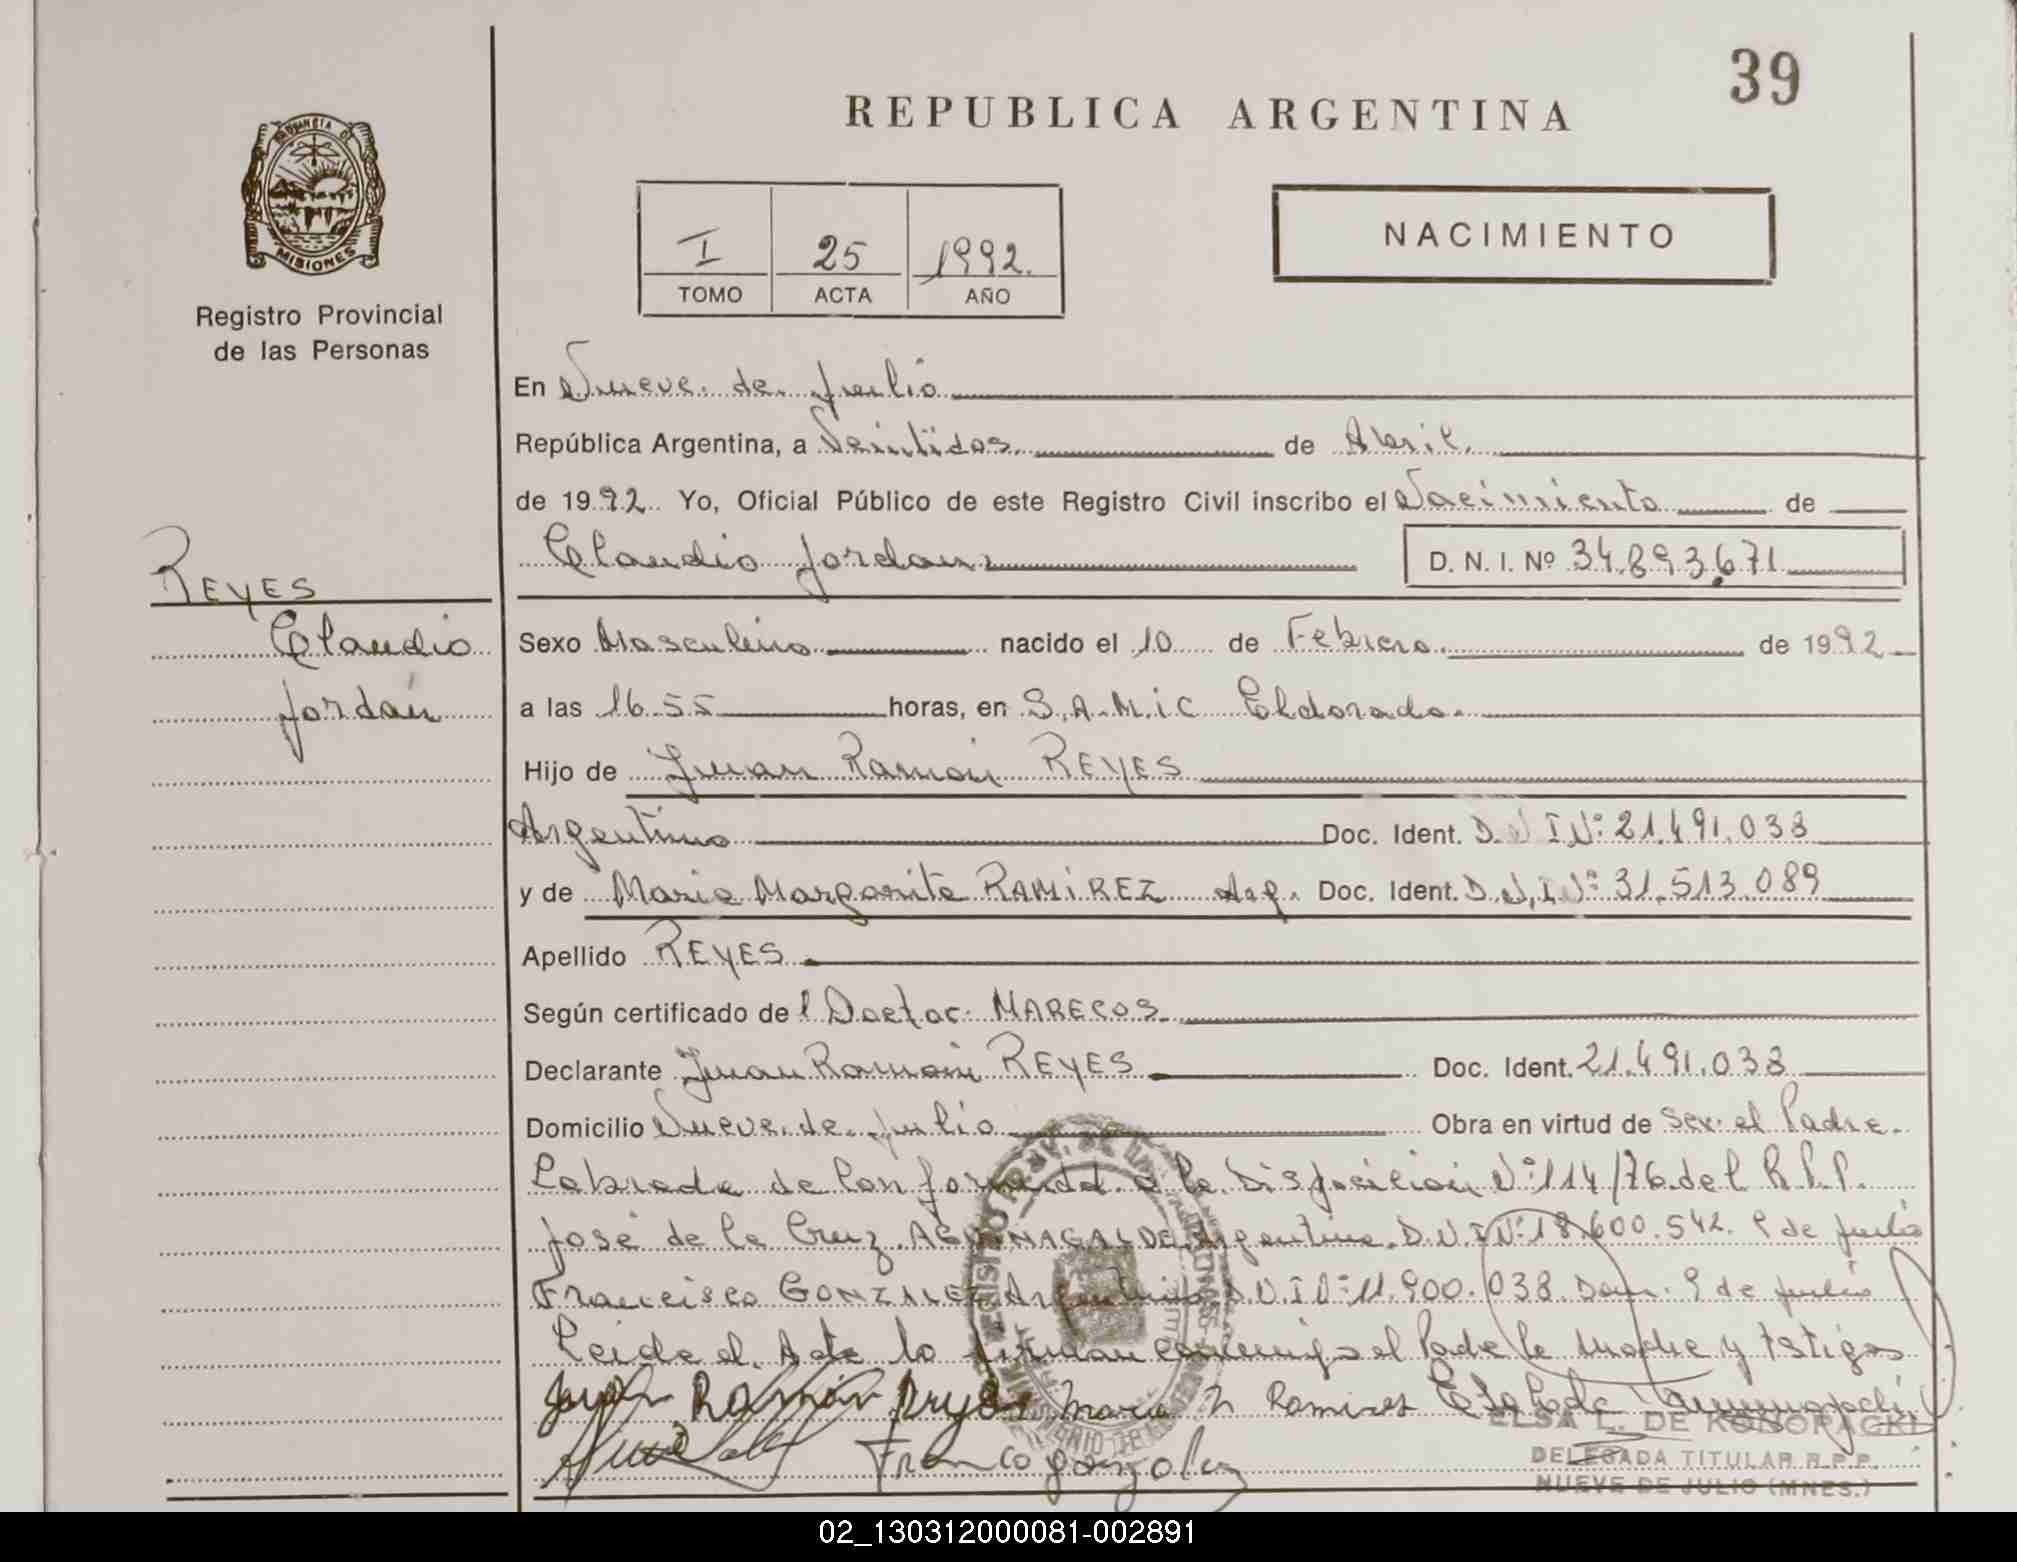 39
REPUBLICA ARGENTINA
PROVINCIA DE
MISIONES
Registro Provincial
de las Personas
I 25 1992.
TOMO ACTA AÑO
NACIMIENTO
En Nueve de Julio
República Argentina, a Veintidos de Abril.
de 1992. Yo, Oficial Público de este Registro Civil inscribo el Nacimiento de
Claudio Jordan D. N. I. Nº 34.893.671
REYES
Claudio
Jordán
Sexo Masculino nacido el 10 de Febrero de 1992
a las 16.55 horas, en S.A.M.i.C Eldorado.
Hijo de Juan Ramón REYES
Argentino Doc. Ident. D.N.I Nº 21.491.038
y de Maria Margarita RAMiREZ Arg. Doc. Ident. D.N.I Nº 31.513.089
Apellido REYES
Según certificado del Doctor MARECOS
Declarante Juan Ramón REYES Doc. Ident. 21.491.038
Domicilio Nueve de Julio Obra en virtud de ser el Padre.
Labrada de Conformidad a la Disposición Nº 114/76 del R.P.P.
José de la Cruz Argentino D.N.I Nº 18.600.542. 9 de Julio
Francisco GONZALEZ Argentino D.N.I Nº 11.900.038 Dom. 9 de Julio
Leida el Acta lo firman conmigo el Padre la Madre y testigos
Juan Ramón Reyes Maria M Ramires
Franco Gonzalez
ELSA L. DE KONOPACKI
DELEGADA TITULAR R.P.P.
NUEVE DE JULIO (MNES.)
02_130312000081-002891